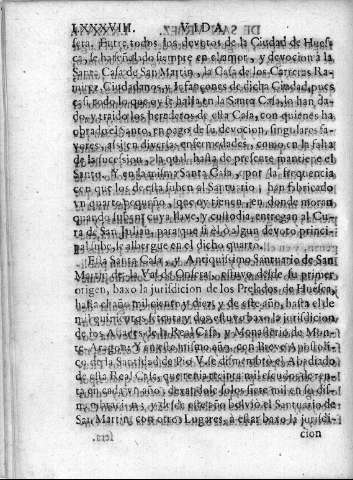 LXXXXVIII. VIDA
sera. Entre todos los devotos de la Ciudad de Huesca,
le ha señalado siempre en el amor, y devocion à la
Santa Casa de San Martin, la Casa de los Carreras Ramirez,
Ciudadanos, y Infançones de dicha Ciudad, pues
casi todo lo que oy se halla en la Santa Casa, lo han dado,
y traido los herederos de esta Casa, con quienes ha
obrado el Santo, en pago de su devocion, singulares favores,
assi en diversas enfermedades, como en la falta
de la sucession, la qual hasta de presente mantiene el
Santo. Y en la misma Santa Casa, y por la frequencia
con que los de esta suben al Santuario; han fabricado
vn quarto pequeño, que oy tienen, en donde moran
quando suben; cuya llave, y custodia, entregan al Cura
de San Julian, para que si el, ò algun devoto principal
sube, se albergue en el dicho quarto.
Esta Santa Casa, y Antiquissimo Santuario de San
Martin de la Val de Onsera, estuvo desde su primer
origen, baxo la jurisdicion de los Prelados de Huesca,
hasta el año mil ciento y diez, y de este año, hasta el de
mil quinientos setenta y dos estuvo baxo la jurisdicion
de los Abades de la Real Casa, y Monasterio de Monte
Aragon: Y en este mismo año, con breve Apostolico
de la Santidad de Pio V. se dismembrò el Abadiado
de esta Real Casa, que tenia treinta mil escudos de renta
en cada vn año; dexandole solos siete mil en su
y de este año bolviò el Santuario de
San Martin, con otros Lugares, à estar baxo la jurisdicion